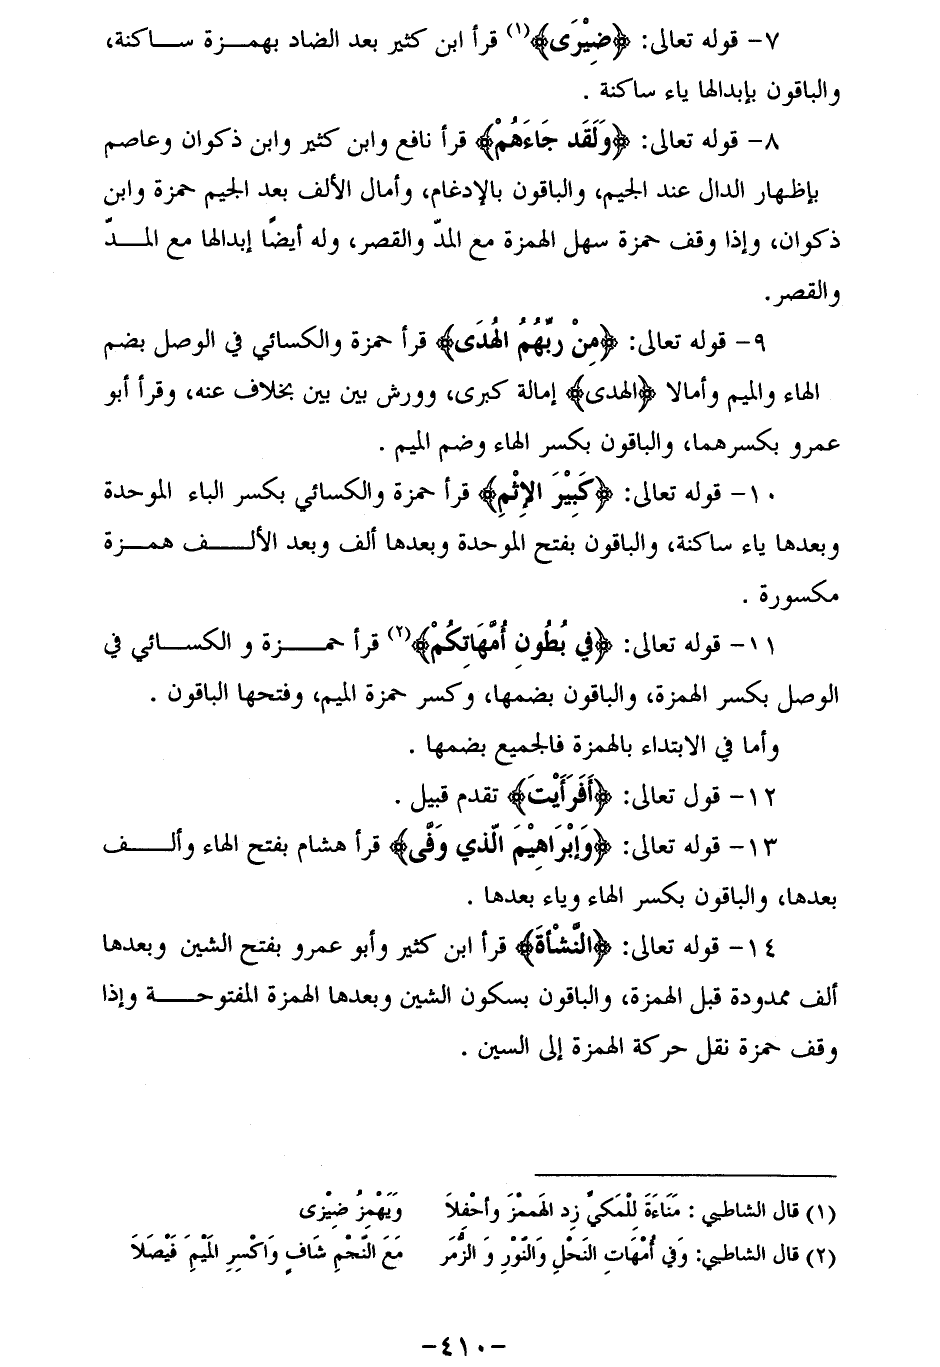 ٧- قوله تعالى: ﴿ضِيْزَى﴾(١) قرأ ابن كثير بعد الضاد بهمـزة ساكنة،
والباقون بإبدالها ياء ساكنة .
٨- قوله تعالى: ﴿وَلَقَد جَاءَهُمْ﴾ قرأ نافع وابن كثير وابن ذكوان وعاصم
بإظهار الدال عند الجيم، والباقون بالإدغام، وأمال الألف بعد الجيم حمزة وابن
ذكوان، وإذا وقف حمزة سهل الهمزة مع المدّ والقصر، وله أيضًا إبدالها مع المدّ
والقصر.
٩- قوله تعالى: ﴿مِنْ رَبِّهُمُ الهُدَى﴾ قرأ حمزة والكسائي في الوصل بضم
الهاء والميم وأمالا ﴿الهدى﴾ إمالة كبرى، وورش بين بين بخلاف عنه، وقرأ أبو
عمرو بكسرهما، والباقون بكسر الهاء وضم الميم .
١٠- قوله تعالى: ﴿كَبِيْرَ الإِثْمِ﴾ قرأ حمزة والكسائي بكسر الباء الموحدة
وبعدها ياء ساكنة، والباقون بفتح الموحدة وبعدها ألف وبعد الألف همزة
مكسورة .
١١- قوله تعالى: ﴿فِي بُطُونِ أُمَّهَاتِكُمْ﴾(٢) قرأ حمزة و الكسائي في
الوصل بكسر الهمزة، والباقون بضمها، وكسر حمزة الميم، وفتحها الباقون .
وأما في الابتداء بالهمزة فالجميع بضمها .
١٢- قول تعالى: ﴿أَفَرَأَيْتَ﴾ تقدم قبيل .
١٣- قوله تعالى: ﴿وَإِبْرَاهِيْمَ الَّذي وَفَّى﴾ قرأ هشام بفتح الهاء وألف
بعدها، والباقون بكسر الهاء وياء بعدها .
١٤- قوله تعالى: ﴿النَّشْأَةَ﴾ قرأ ابن كثير وأبو عمرو بفتح الشين وبعدها
ألف ممدودة قبل الهمزة، والباقون بسكون الشين وبعدها الهمزة المفتوحة وإذا
وقف حمزة نقل حركة الهمزة إلى السين .
(١) قال الشاطبي : مَنَاءَةَ لِلْمَكيِّ زِد الهَممْزَ وأحْفِلاَ وَيَهْمِزُ ضِيْزى
(٢) قال الشاطبي: وَفي أُمْهَاتِ النَحْلِ وَالنّوْرِ وَ الزُّمَر مَعَ النَجْمِ شَافٍ وَاكْسِرِ المْيمَ فَيْصَلاَ
-٤١٠-